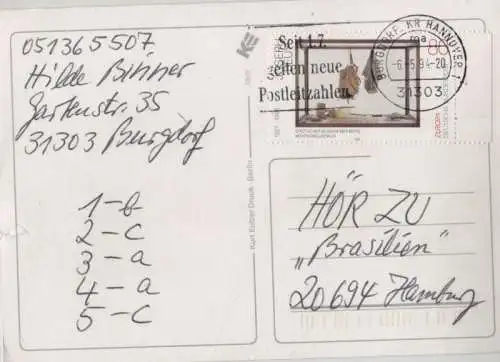 051365507
Hilde Binner
Gartenstr. 35
31303 Burgdorf
1-b
2-c
3-a
4-a
5-c
KE
Karl Eidner Druck · Berlin
Seit 1.7.
gelten neue
Postleitzahlen
BURGDORF, KR HANNOVER 1
ma
-6.-5.94-20
31303
80
EUROPA
HÖR ZU
„Brasilien"
20694 Hamburg